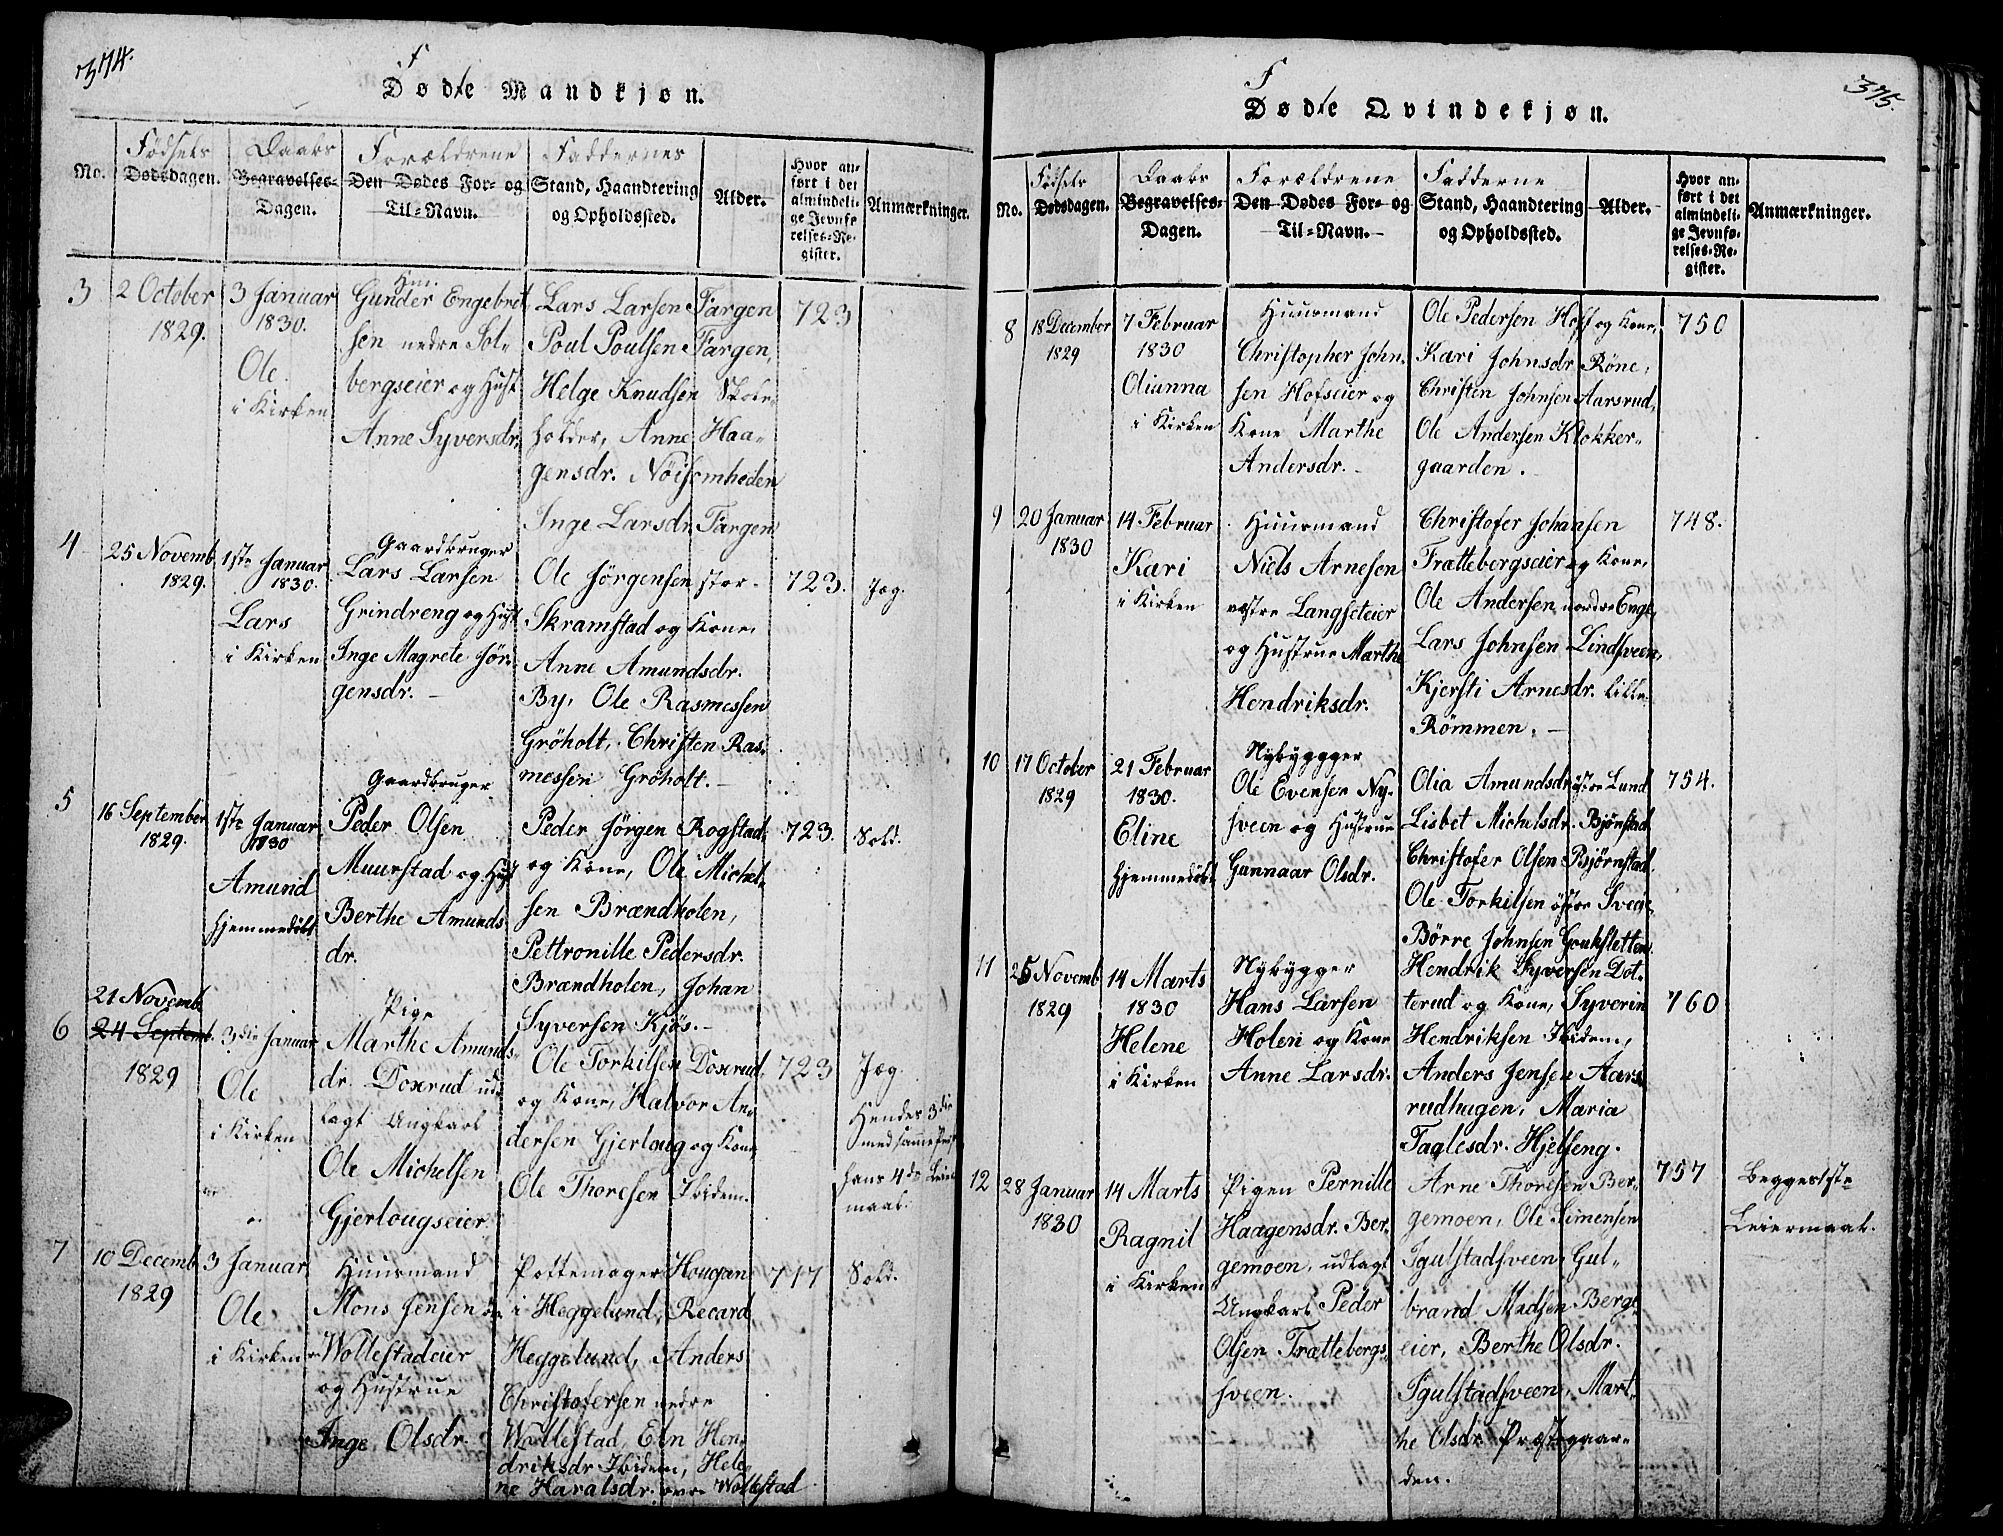 374.
F
Dødte Mandkjøn.
No.
Fødsels
Dødsdagen.
Daabs
Begravelses-
Dagen.
Forældrene
Den Dødes For- og
Til-Navn.
Faddernes
Stand, Haandtering
og Opholdssted.
Alder.
Hvor an-
ført i det
almindeli-
ge Jevnfø-
relses-Re-
gister.
Anmærkninger.
3
2 October
1829.
3 Januar
1830.
Ole
i Kirken
Hmd.
Gunder Engebret
sen nedre Sol-
bergseier og Hust
Anne Syversdr.
Lars Larsen Fargen
Poul Poulsen Fargen,
Helge Knudsen Skole-
holder, Anne Haa-
gensdr. Nöisomheden
Inge Larsdr. Fargen
723
4
25 Novemb
1829.
1ste Januar
1830.
Lars
i Kirken
Gaardbruger
Lars Larsen
Grindreng og Hust
Inge Magrete Jör-
gensdr.
Ole Jörgensen stor-
Skramstad og Kone,
Anne Amundsdr.
By, Ole Rasmessen
Gröholt, Christen Ras-
messen Gröholt.
723.
Jæg.
5
16 September
1829.
1ste Januar
1830
Amund
hjemmedöbt
Gaardbruger
Peder Olsen
Muurstad og Hust
Berthe Amunds
dr.
Peder Jörgen Rogstad
og Kone, Ole Michel-
sen Brændholen,
Pettronille Pedersdr.
Brændholen, Johan
Syversen Kjös.
723.
Sold.
6
21 Novemb
24 Septemb.
1829
3die Januar
Ole
i Kirken
Pige
Marthe Amunds-
dr. Doserud ud-
lagt Ungkarl
Ole Michelsen
Gjerlougseier
Ole Torkilsen Doserud
og Kone, Halvor An-
dersen Gjerloug og Kone
Ole Thoresen Ibidem.
723
Jæg.
Hendes 3die
med samme
hans 4de Leier
maal.
7
10 Decemb
1829
3 Januar
Ole
i Kirken
Huusmand
Mons Jensen
Wollestadeier
og Hustrue
Inge Olsdr.
Pottemager Hougan
i Heggelund, Recard
Heggelund, Anders
Christofersen nedre
Wollestad, Eln Hen-
driksdr Ibidem, Hele-
ne Haralsdr. øvre Wollestad
717
Sold.
375.
F
Dødte Qvindekjøn.
No.
Fødsels
Dødsdagen.
Daabs
Begravelses-
Dagen.
Forældrene
Den Dødes For- og
Til-Navn.
Fadderne
Stand, Haandtering
og Opholdssted.
Alder.
Hvor an-
ført i det
almindeli-
ge Jevnfø-
relses-Re-
gister.
Anmærkninger.
8
18 December
1829
7 Februar
1830
Olianna
i Kirken
Huusmand
Christopher John-
sen Hofseier og
Kone Marthe
Andersdr.
Ole Pedersen Hoff og Kone,
Kari Johnsdr Röne,
Christen Johnsen Aarsrud,
Ole Andersen Klokker-
gaarden.
750
9
20 Januar
1830
14 Februar
Kari
i Kirken
Huusmand
Niels Arnesen
vestre Langseteier
og Hustrue Marthe
Hendriksdr.
Christofer Johansen
Frættebergseier og Kone,
Ole Andersen nordre Enge,
Lars Johnsen Lindsveen,
Kjersti Arnesdr. lille
Römmen.
748.
10
17 October
1829
21 Februar
1830.
Eline
hjemmedöbt
Nybyggger
Ole Evensen Ny-
sveen og Hustrue
Gunnaar Olsdr.
Olia Amundsdr östre Lund
Lisbet Michelsdr. Bjönstad
Christofer Olsen Björnstad
Ole Torkilsen östre Svege,
Börre Johnsen Grukstetten.
754.
11
25 Novemb
1829
14 Marts
1830
Helene
i Kirken
Nybygger
Hans Larsen
Holen og Kone
Anne Larsdr.
Hendrik Syversen Dot-
terud og Kone, Syverin
Hendriksen Ibidem,
Anders Jensen Aars-
rudhagen, Maria
Taalesdr. Hjelseng.
760
12
28 Januar
1830
14 Marts
Ragnil
i Kirken
Pigen Pernille
Haagensdr. Ber-
gemoen, udlagt
Ungkarl Peder
Olsen Frættebergs-
sveen.
Arne Thoresen Ber-
gemoen, Ole Simensen
Igulstadsveen, Gul-
brand Madsen Berge-
eier, Berthe Olsdr.
Igulstadsveen, Mart-
he Olsdr. Præstegaar-
den.
757
Begges 1ste
Leiermaal.